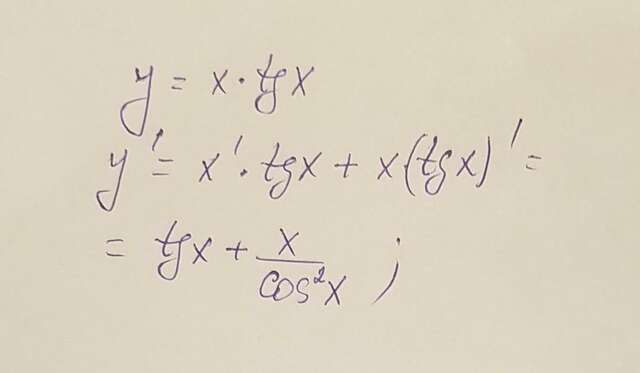 y = x · tgx
y' = x' · tgx + x(tgx)' =
= tgx + x/cos²x ;